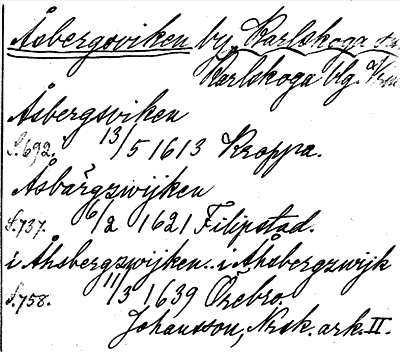 Åsbergsviken by, Karlskoga
Karlskoga blg. Vrm
Åsbergsviken
S.692. 13/5 1613 Kroppa.
Åsbärgzwijken
S.737. 6/2 1621 Filipstad.
i Åhsbergzwijken.. i Åhsbergzwijk
S.758. 11/3 1639 Örebro.
Johansson, Nrsk. ark. II.